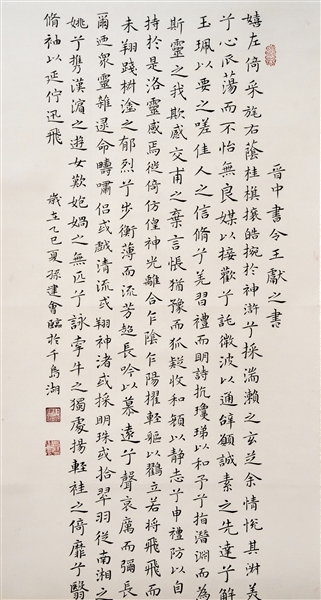 晋中書令王獻之書
嬉左倚采旄右蔭桂旗攘皓捥於神滸兮採湍瀨之玄芝余情悅其淑美
兮心震蕩而不怡無良媒以接歡兮託微波以通辭願誠素之先達兮解
玉珮以要之嗟佳人之信脩兮羌習禮而明詩抗瓊珶以和予兮指潛淵而為
斯靈之我欺感交甫之棄言悵猶豫而狐疑收和顏以靜志兮申禮防以自
持於是洛靈感焉徙倚仿偟神光離合乍陰乍陽擢輕軀以鶴立若將飛飛而
未翔踐椒塗之郁烈兮步衡薄而流芳超長吟以慕遠兮聲哀厲而彌長
爾迺衆靈雜遝命疇嘯侶或戲清流或翔神渚或採明珠或拾翠羽從南湘之
姚兮携漢濱之遊女歎媧之無匹兮詠牽牛之獨處揚輕袿之倚靡兮翳
脩袖以延佇迅飛
歲在乙巳夏孫建會臨於千島湖